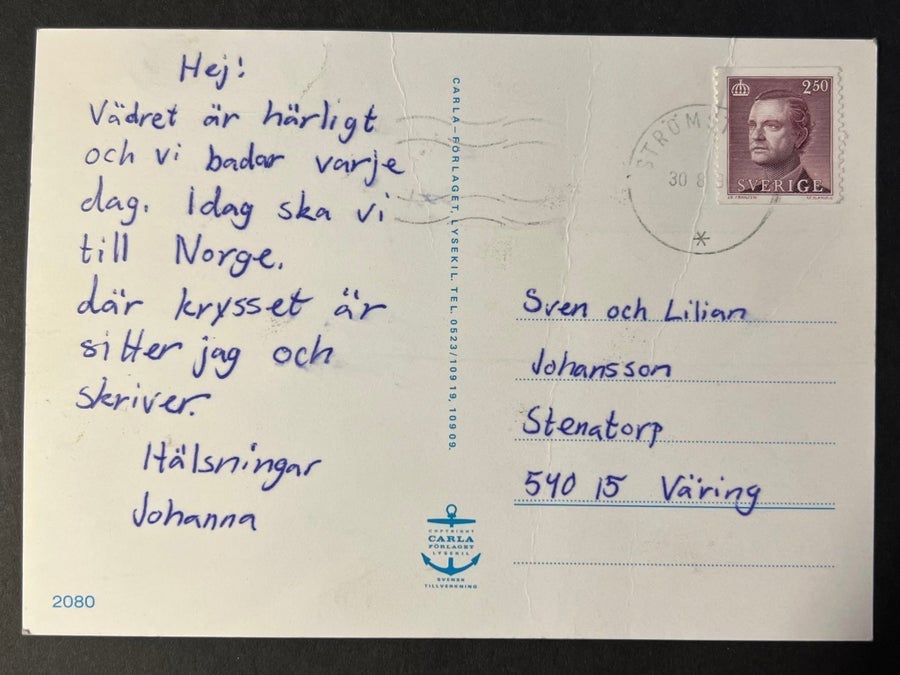 Hej!
Vädret är härligt
och vi badar varje
dag. Idag ska vi
till Norge.
där krysset är
sitter jag och
skriver.
Hälsningar
Johanna
2080
CARLA-FÖRLAGET, LYSEKIL. TEL. 0523/109 19, 109 09.
COPYRIGHT
CARLA
FÖRLAGET
LYSEKIL
SVENSK
TILLVERKNING
30 8
2.50
SVERIGE
Sven och Lilian
Johansson
Stenatorp
540 15 Väring